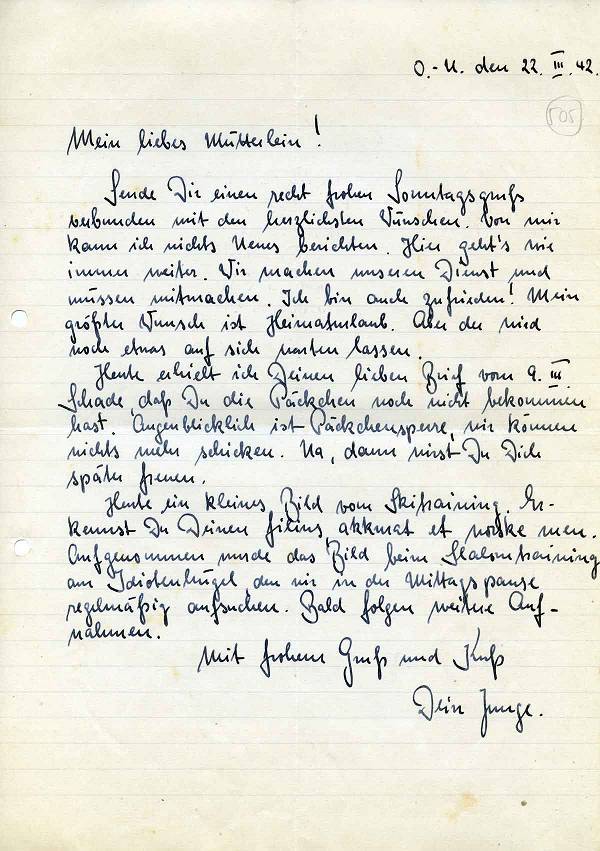 O.-U. den 22. III. 42.
505
Mein liebes Mütterlein!
Sende Dir einen recht frohen Sonntagsgruß
verbunden mit den herzlichsten Wünschen. Von mir
kann ich nichts Neues berichten. Hier geht's wie
immer weiter. Wir machen unseren Dienst und
müssen mitmachen. Ich bin auch zufrieden! Mein
größter Wunsch ist Heimaturlaub. Aber der wird
noch etwas auf sich warten lassen.
Heute erhielt ich Deinen lieben Brief vom 9. III.
Schade, daß Du die Päckchen noch nicht bekommen
hast. Augenblicklich ist Päckchensperre, wir können
nichts mehr schicken. Na, dann wirst Du Dich
später freuen.
Heute ein kleines Bild vom Skitraining. Er-
kennst Du Deinen filius akkurat et norske men.
Aufgenommen wurde das Bild beim Slalomtraining
am Idiotenhügel, den wir in der Mittagspause
regelmäßig aufsuchen. Bald folgen weitere Auf-
nahmen.
Mit frohem Gruß und Kuß
Dein Junge.